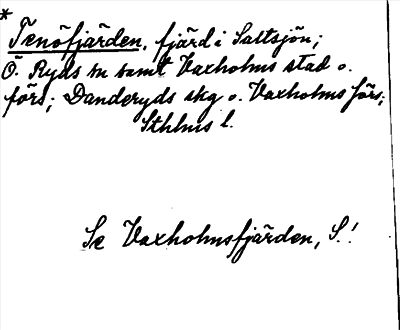 *
Tenöfjärden, fjärd i Saltsjön;
Ö. Ryds sn samt Vaxholms stad o.
förs; Danderyds skg o. Vaxholms förs;
Sthlms l.
Se Vaxholmsfjärden, S.!